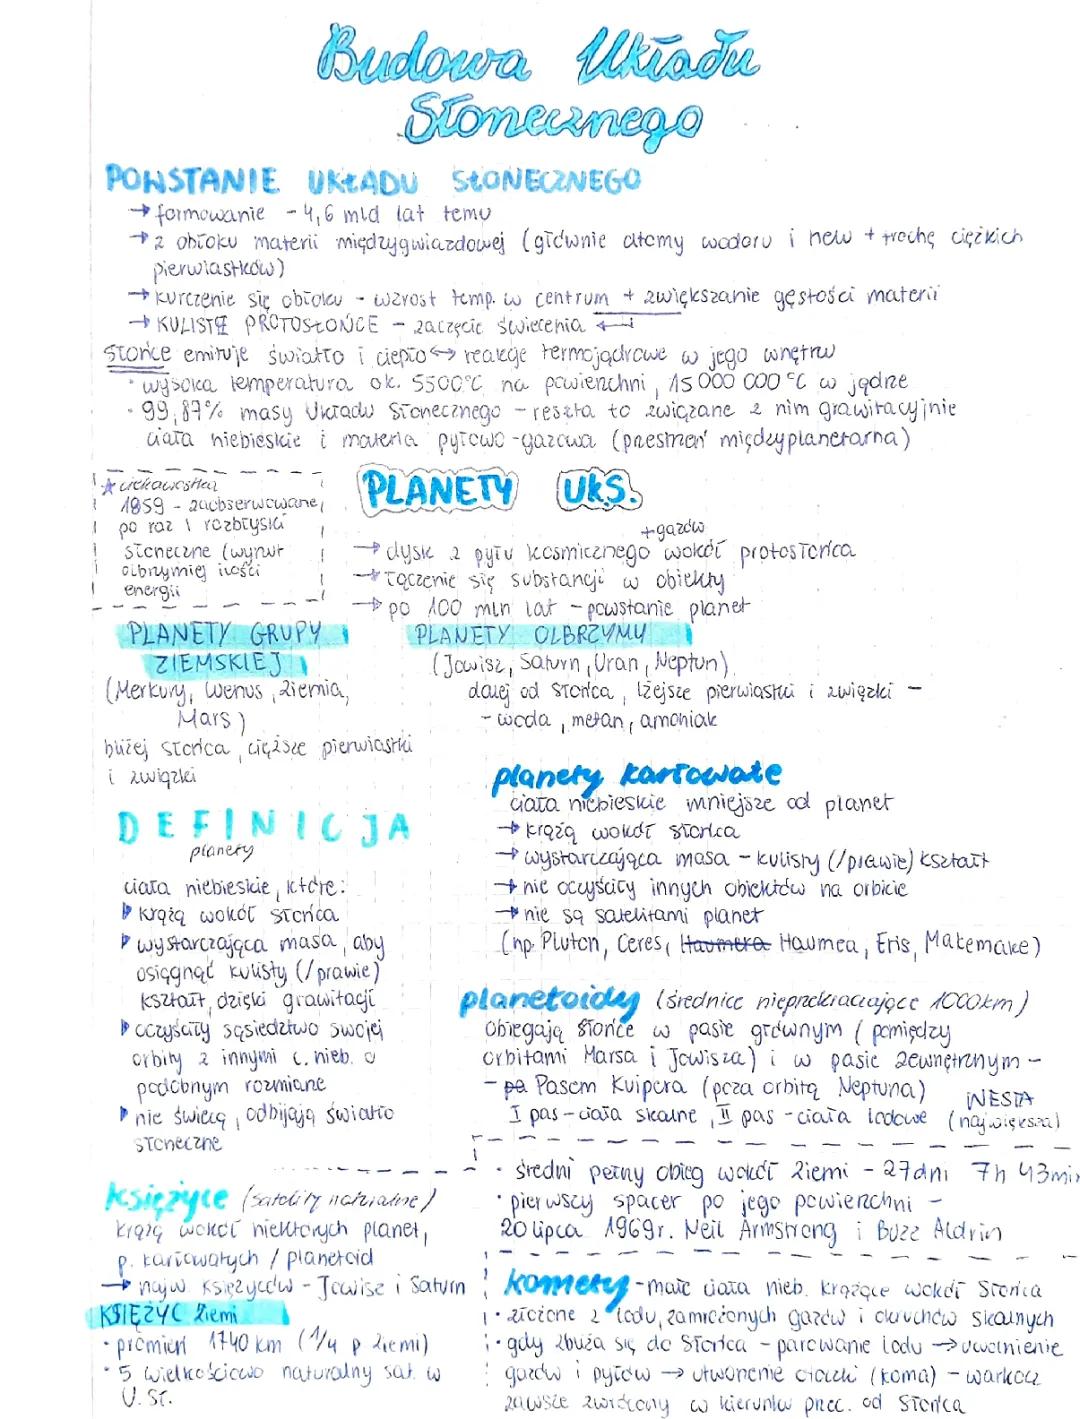 Budowa Układu
Słonecznego
POWSTANIE UKŁADU SŁONECZNEGO
→ formowanie - 4,6 mld lat temu
→ z obłoku materii międzygwiazdowej (głównie atomy wodoru i helu + trochę ciężkich
pierwiastków)
→ kurczenie się obłoku - wzrost temp. w centrum + zwiększanie gęstości materii
→ KULISTE PROTOSŁOŃCE - zaczęcie świecenia ←
Słońce emituje światło i ciepło ↔ reakcje termojądrowe w jego wnętrzu
• wysoka temperatura ok. 5500°C na powierzchni, 15 000 000 °C w jądrze
• 99,87% masy Układu Słonecznego - reszta to związane z nim grawitacyjnie
ciała niebieskie i materia pyłowo-gazowa (przestrzeń międzyplanetarna)
☆ ciekawostka
1859 - zaobserwowane
po raz 1 rozbłyski
słoneczne (wyrzut
olbrzymiej ilości
energii
PLANETY UK.S.
+ gazów
→ dysk z pyłu kosmicznego wokół protosłońca
→ łączenie się substancji w obiekty
→ po 100 mln lat - powstanie planet
PLANETY GRUPY
ZIEMSKIEJ
(Merkury, Wenus, Ziemia,
Mars)
bliżej Słońca, cięższe pierwiastki
i związki
PLANETY OLBRZYMY
(Jowisz, Saturn, Uran, Neptun)
dalej od Słońca, lżejsze pierwiastki i związki -
- woda, metan, amoniak
DEFINICJA
planety
ciała niebieskie, które:
▶ krążą wokół Słońca
▶ wystarczająca masa, aby
osiągnąć kulisty (/prawie)
kształt, dzięki grawitacji
▶ oczyściły sąsiedztwo swojej
orbity z innymi c. nieb. o
podobnym rozmiarze
▶ nie świecą, odbijają światło
słoneczne
planety karłowate
ciała niebieskie mniejsze od planet
→ krążą wokół Słońca
→ wystarczająca masa - kulisty (/prawie) kształt
→ nie oczyściły innych obiektów na orbicie
→ nie są satelitami planet
(np. Pluton, Ceres, Haumera Haumea, Eris, Makemake)
planetoidy (średnice nieprzekraczające 1000km)
obiegają Słońce w pasie głównym (pomiędzy
orbitami Marsa i Jowisza) i w pasie zewnętrznym -
- pa Pasem Kuipera (poza orbitą Neptuna)
I pas - ciała skalne, II pas - ciała lodowe
WESTA
(największa)
księżyce (satelity naturalne)
krążą wokół niektórych planet,
p. karłowatych / planetoid
→ najw. księżyców - Jowisz i Saturn
KSIĘŻYC Ziemi
• promień 1740 km (1/4 p Ziemi)
• 5 wielkościowo naturalny sat. w
U. Sł.
• średni pełny obieg wokół Ziemi - 27dni 7h 43min
• pierwszy spacer po jego powierzchni -
20 lipca 1969r. Neil Armstrong i Buzz Aldrin
komety - małe ciała nieb. krążące wokół Słońca
• złożone z lodu, zamrożonych gazów i okruchów skalnych
• gdy zbliża się do Słońca - parowanie lodu → uwolnienie
gazów i pyłów → utworzenie otoczki (koma) - warkocz
zawsze zwrócony w kierunku przec. od Słońca